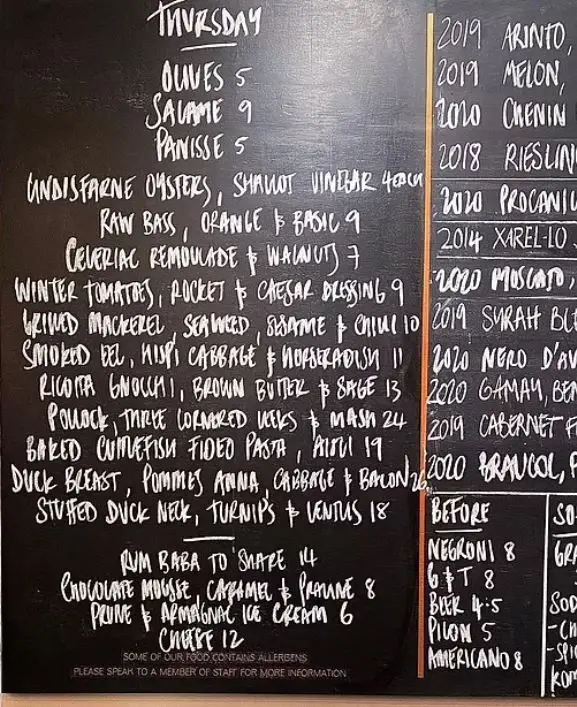 THURSDAY
OLIVES 5
SALAME 9
PANISSE 5
LINDISFARNE OYSTERS, SHALLOT VINEGAR 4 EACH
RAW BASS, ORANGE & BASIL 9
CELERIAC REMOULADE & WALNUTS 7
WINTER TOMATOES, ROCKET & CAESAR DRESSING 9
GRILLED MACKEREL, SEAWEED, SESAME & CHILLI 10
SMOKED EEL, HISPI CABBAGE & HORSERADISH 11
RICOTTA GNOCCHI, BROWN BUTTER & SAGE 13
POLLOCK, THREE CORNERED LEEKS & MASH 24
BAKED CUTTLEFISH FIDEO PASTA, AIOLI 19
DUCK BREAST, POMMES ANNA, CABBAGE & BACON 26
STUFFED DUCK NECK, TURNIPS & LENTILS 18
RUM BABA TO SHARE 14
CHOCOLATE MOUSSE, CARAMEL & PRALINE 8
PRUNE & ARMAGNAC ICE CREAM 6
CHEESE 12
SOME OF OUR FOOD CONTAINS ALLERGENS
PLEASE SPEAK TO A MEMBER OF STAFF FOR MORE INFORMATION
2019 ARINTO,
2019 MELON,
2020 CHENIN
2018 RIESLIN
2020 PROCANIC
2014 XAREL-LO
2020 MOSCATO,
2019 SYRAH BLE
2020 NERO D'AV
2020 GAMAY, BEA
2019 CABERNET F
2020 BRAUCOL, P
BEFORE
NEGRONI 8
G & T 8
BEER 4.5
PICON 5
AMERICANO 8
SO
GRA
SOD
-CH
-SPIC
KOM